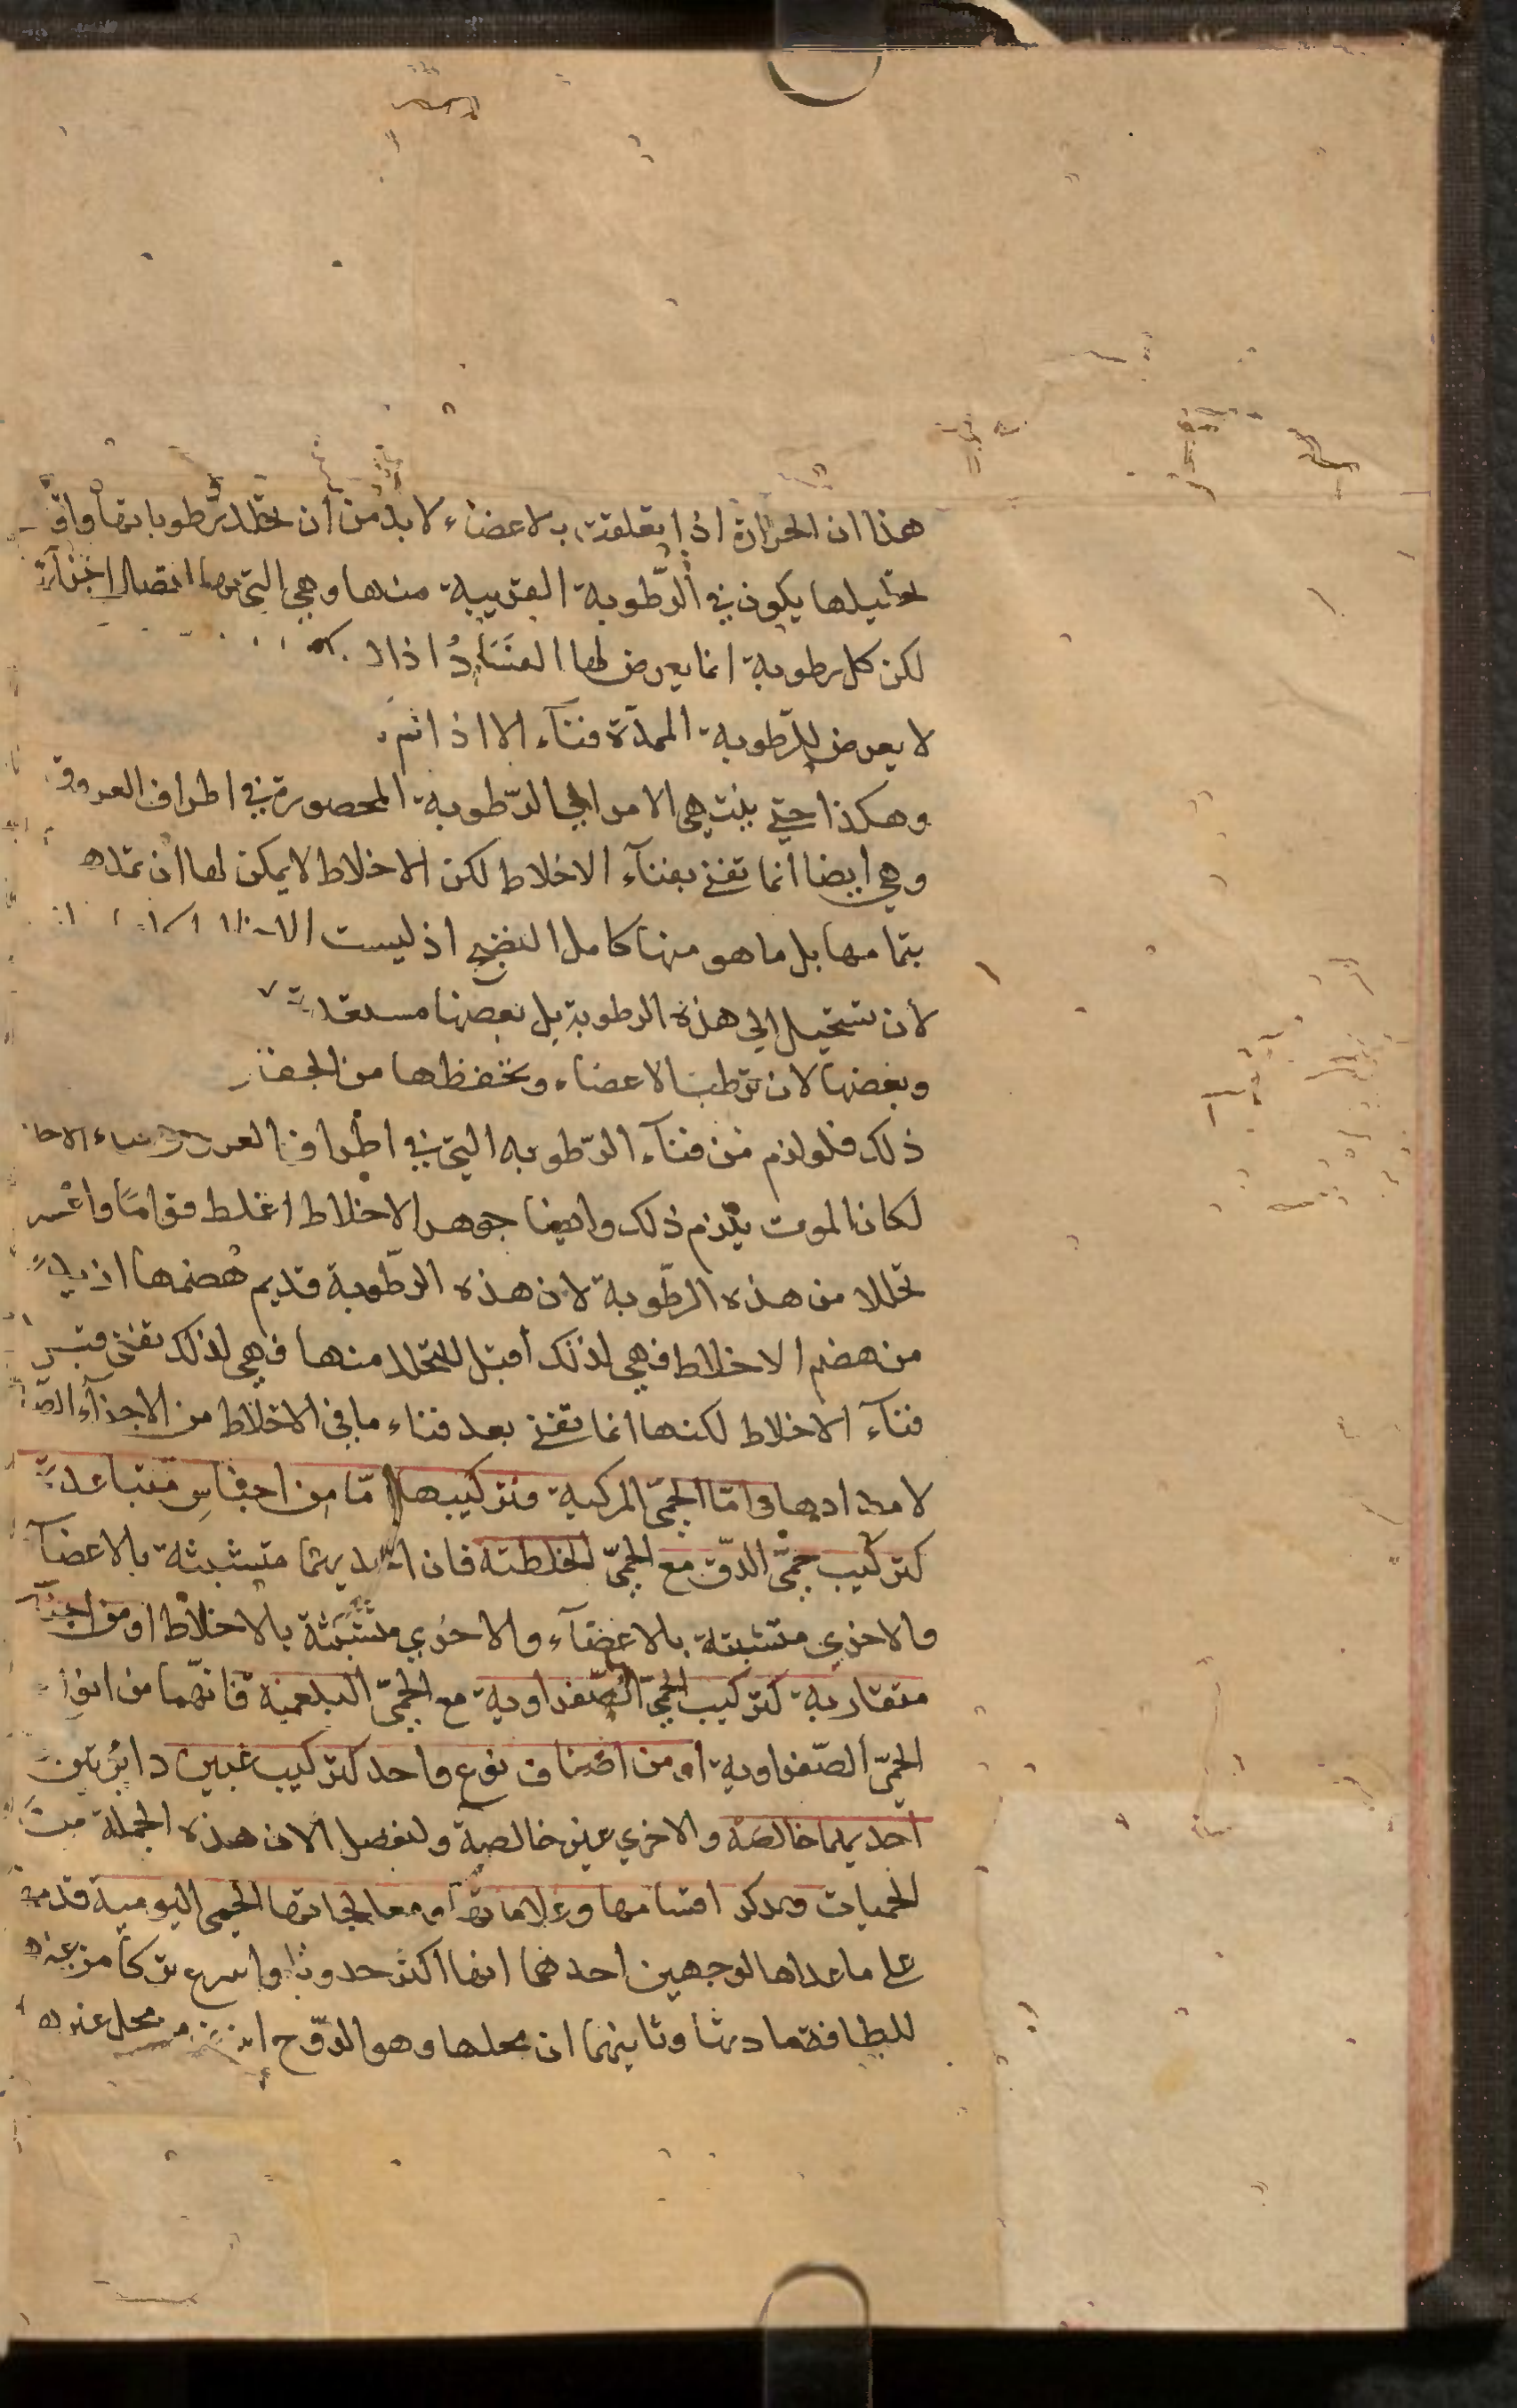 هذا ان الحرارة اذا تعلقت بالاعضاء لا بد من ان تحلل رطوباتها واول
تحليلها يكون في الرّطوبة القريبة منها وهي التي بها اتصال اجزآء
لكن كل رطوبة انما يعرض لها الفنا اذا
لا يعرض للرّطوبة الممدّة فنآء الا اذا تم
وهكذا حتي ينتهي الامر الي الرّطوبة المحصورة في اطراف العروق
وهي ايضا انما تفني بفنآء الاخلاط لكن الاخلاط لا يمكن لها ان تمد
بتمامها بل ما هو منها كامل النضج اذ ليست
لان تستحيل الي هذه الرطوبة بل بعضها مستعد
وبعضها لان ترطب الاعضاء وتحفظها من الجفاف
ذلك فلو لزم من فنآء الرّطوبه التي في اطراف العروق فناء الاخلاط
لكان الموت يلزم ذلك وايضا جوهر الاخلاط اغلظ قوامًا واعسر
تحللا من هذه الرطّوبة لان هذه الرطّوبة قديم هضمها ازيد
من هضم الاخلاط فهي لذلك اقبل للتحلل منها فهي لذلك تفني قبل
فنآء الاخلاط لكنها انما تفني بعد فناء ما في الاخلاط من الاجزآء
لامدادها وامّا الحمّي المركبة فتركيبها امّا من اجناس متباعدة
كتركيب حمّي الدّق مع الحمّي الخلطته فان احديهما متشبثة بالاعضآء
والاخري متشبثة بالاعضآء والاخري متشبثة بالاخلاط او من
متقاربة كتركيب الحمّي الصّفراوية مع الحمّي البلغمية فانهّما من انواع
الحمّي الصّفراوية او من اصناف نوع واحد كتركيب غبين دائرتين
احديهما خالصة والاخري غير خالصة ولنفصل الان هذه الجملة من
الحميات ونذكر اقسامها وعلاماتها ومعالجاتها الحمي اليومية قدمها
علي ما عداها لوجهين احدهما انها اكثر حدوثا واسرع تركا من غيرها
للطافة مادتها وثانيهما ان محلها وهو الرّوح محل غيرها